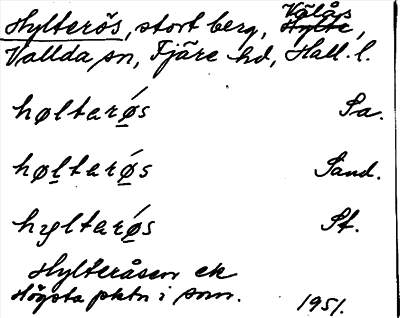 Hylterös, stort berg, Välås
Vallda sn, Fjäre hd, Hall. l.
høltarǿs Sa.
høltarǿs Sand.
hyltarǿs St.
Hylteråsen ek
Högsta pktn i snn. 1951.